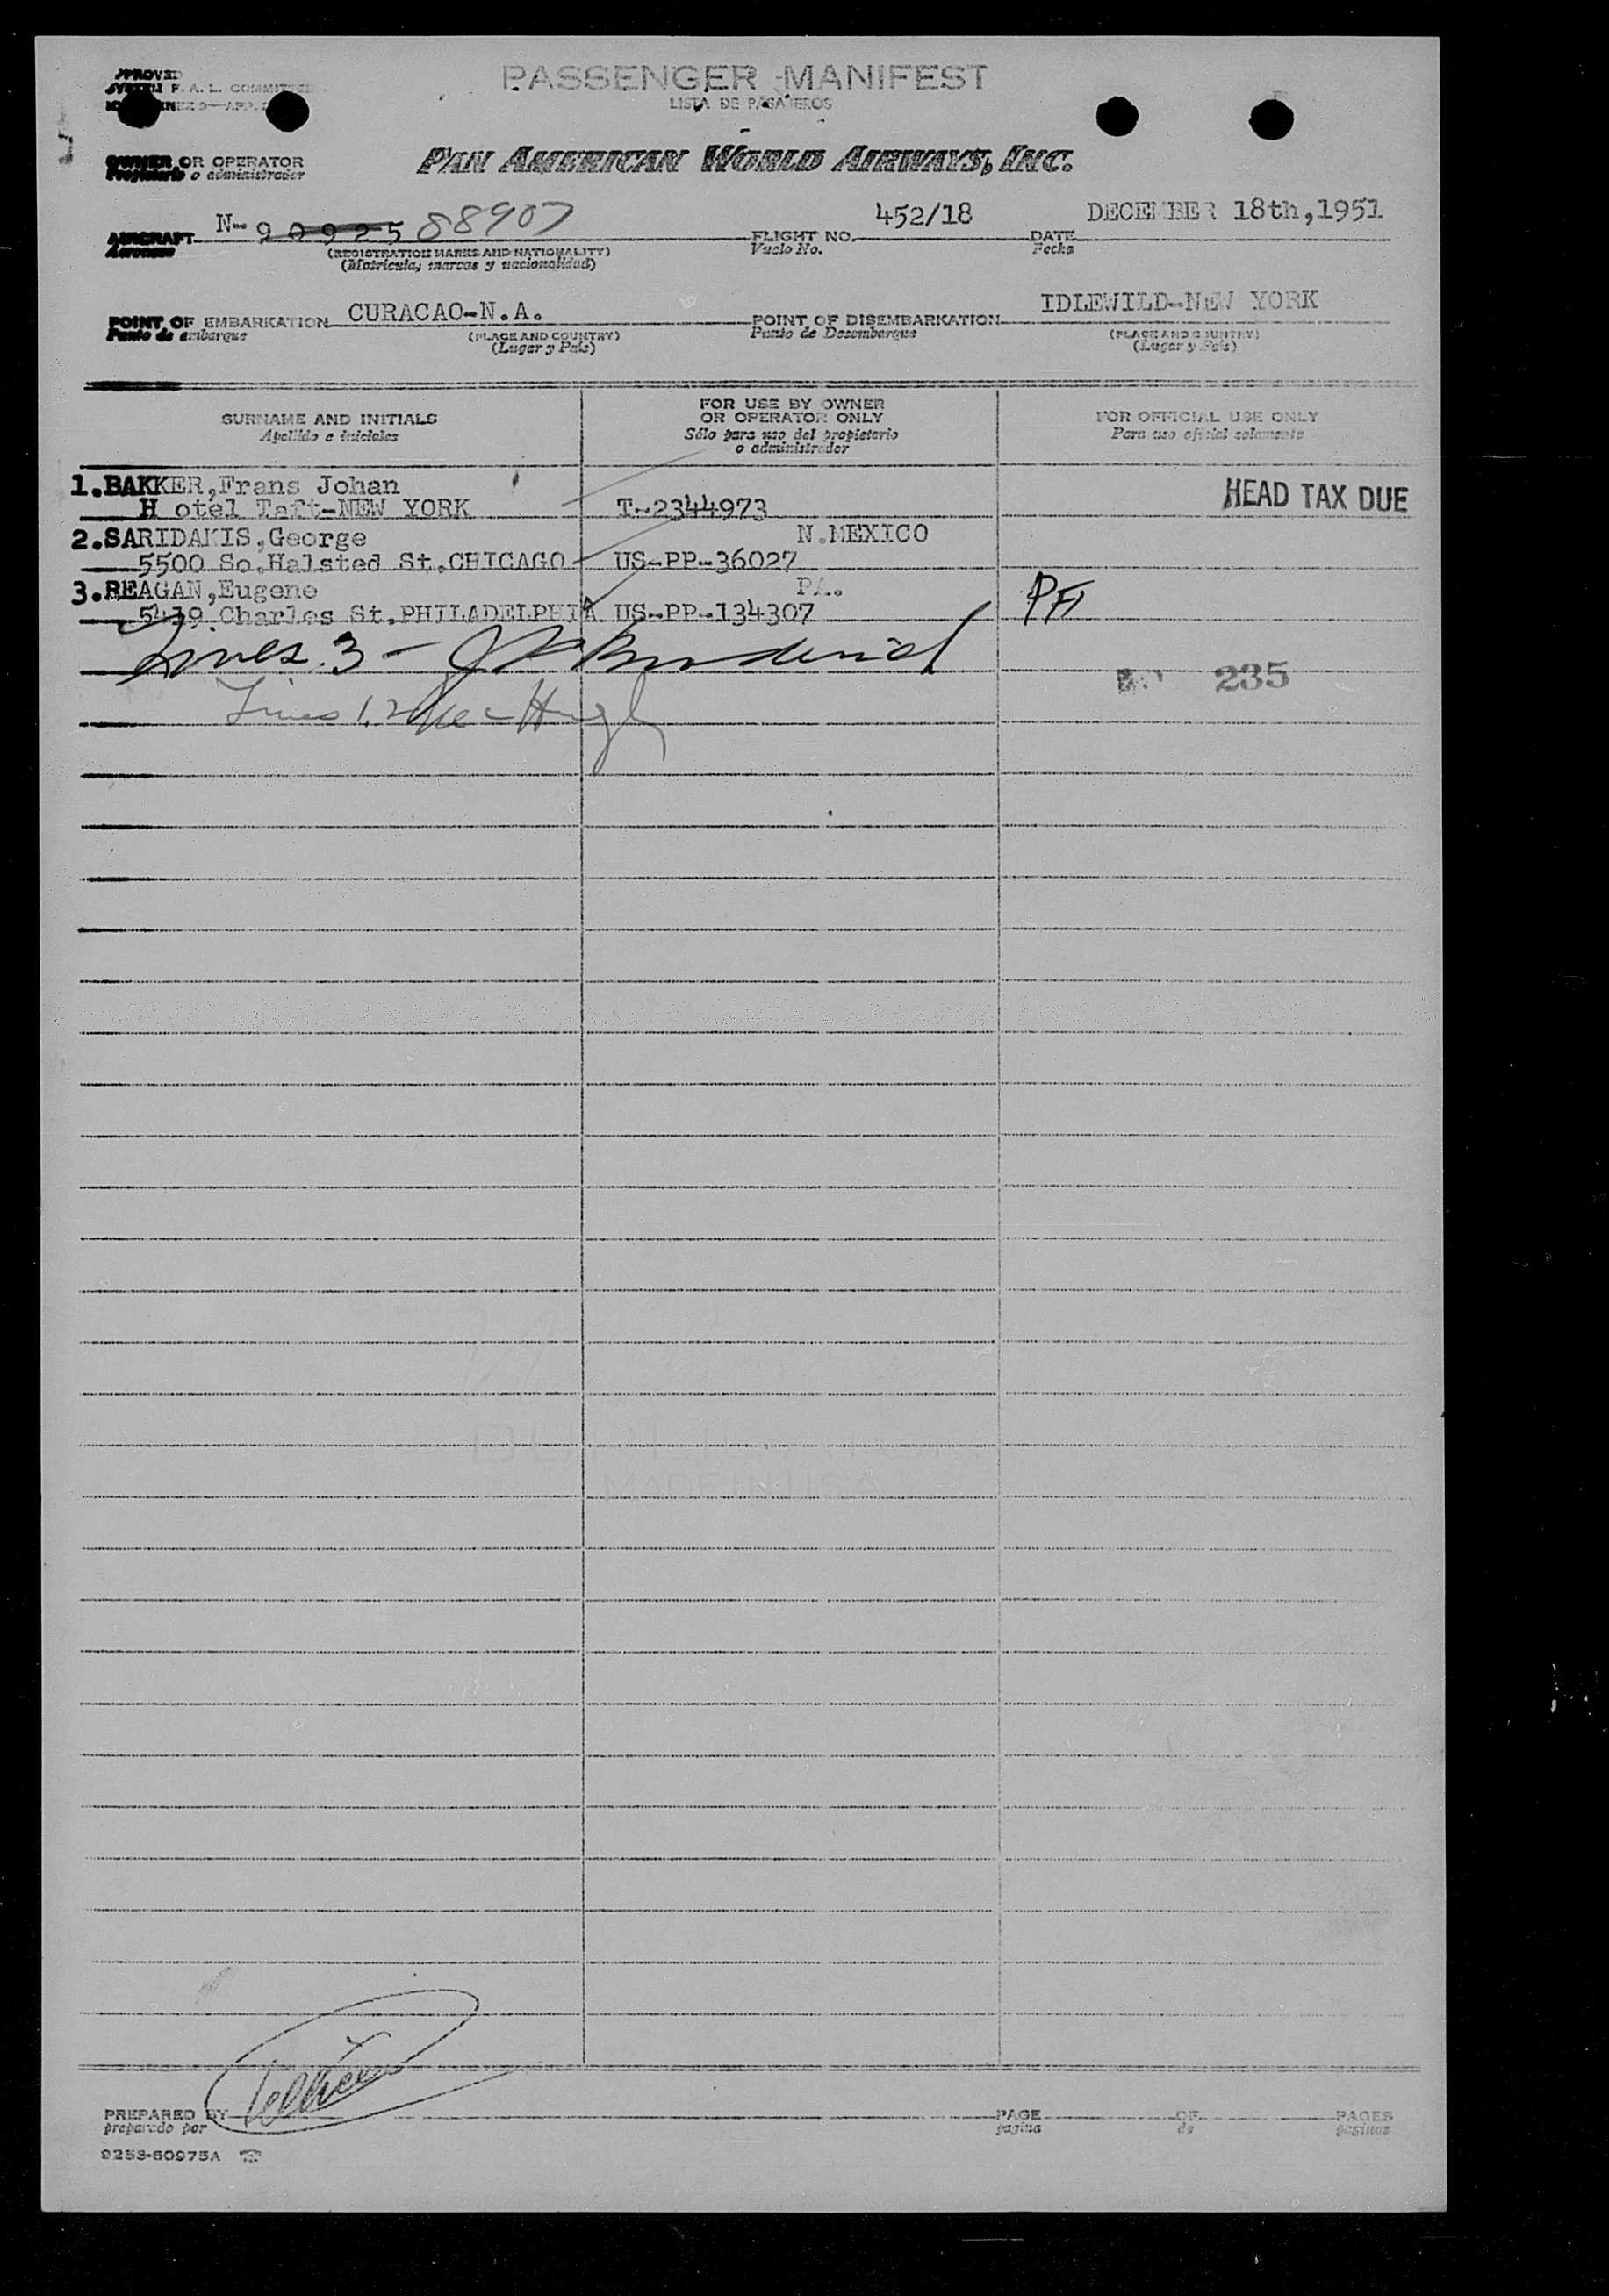 PASSENGER MANIFEST
LISTA DE PASAJEROS
OWNER OR OPERATOR
Propietario o administrador
PAN AMERICAN WORLD AIRWAYS, INC.
AIRCRAFT N-90925 88907 FLIGHT NO. 452/18 DATE DECEMBER 18th,1951
Aeronave (REGISTRATION MARKS AND NATIONALITY) Vuelo No. Fecha
(Matricula, marcas y nacionalidad)
POINT OF EMBARKATION CURACAO-N.A. POINT OF DISEMBARKATION IDLEWILD-NEW YORK
Punto de embarque (PLACE AND COUNTRY) Punto de Desembarque (PLACE AND COUNTRY)
(Lugar y País) (Lugar y País)
SURNAME AND INITIALS FOR USE BY OWNER OR OPERATOR ONLY FOR OFFICIAL USE ONLY
Apellido e iniciales Sólo para uso del propietario o administrador Para uso oficial solamente
1.BAKKER,Frans Johan
H otel Taft-NEW YORK T-2344973 HEAD TAX DUE
2.SARIDAKIS,George N.MEXICO
5500 So.Halsted St.CHICAGO US-PP-36027
3.REAGAN,Eugene PA.
5419 Charles St.PHILADELPHIA US-PP-134307
Lines 3 -
235
Lines 1,2
MADE IN USA
PREPARED BY PAGE OF PAGES
preparado por pagina de paginas
9253-60975A